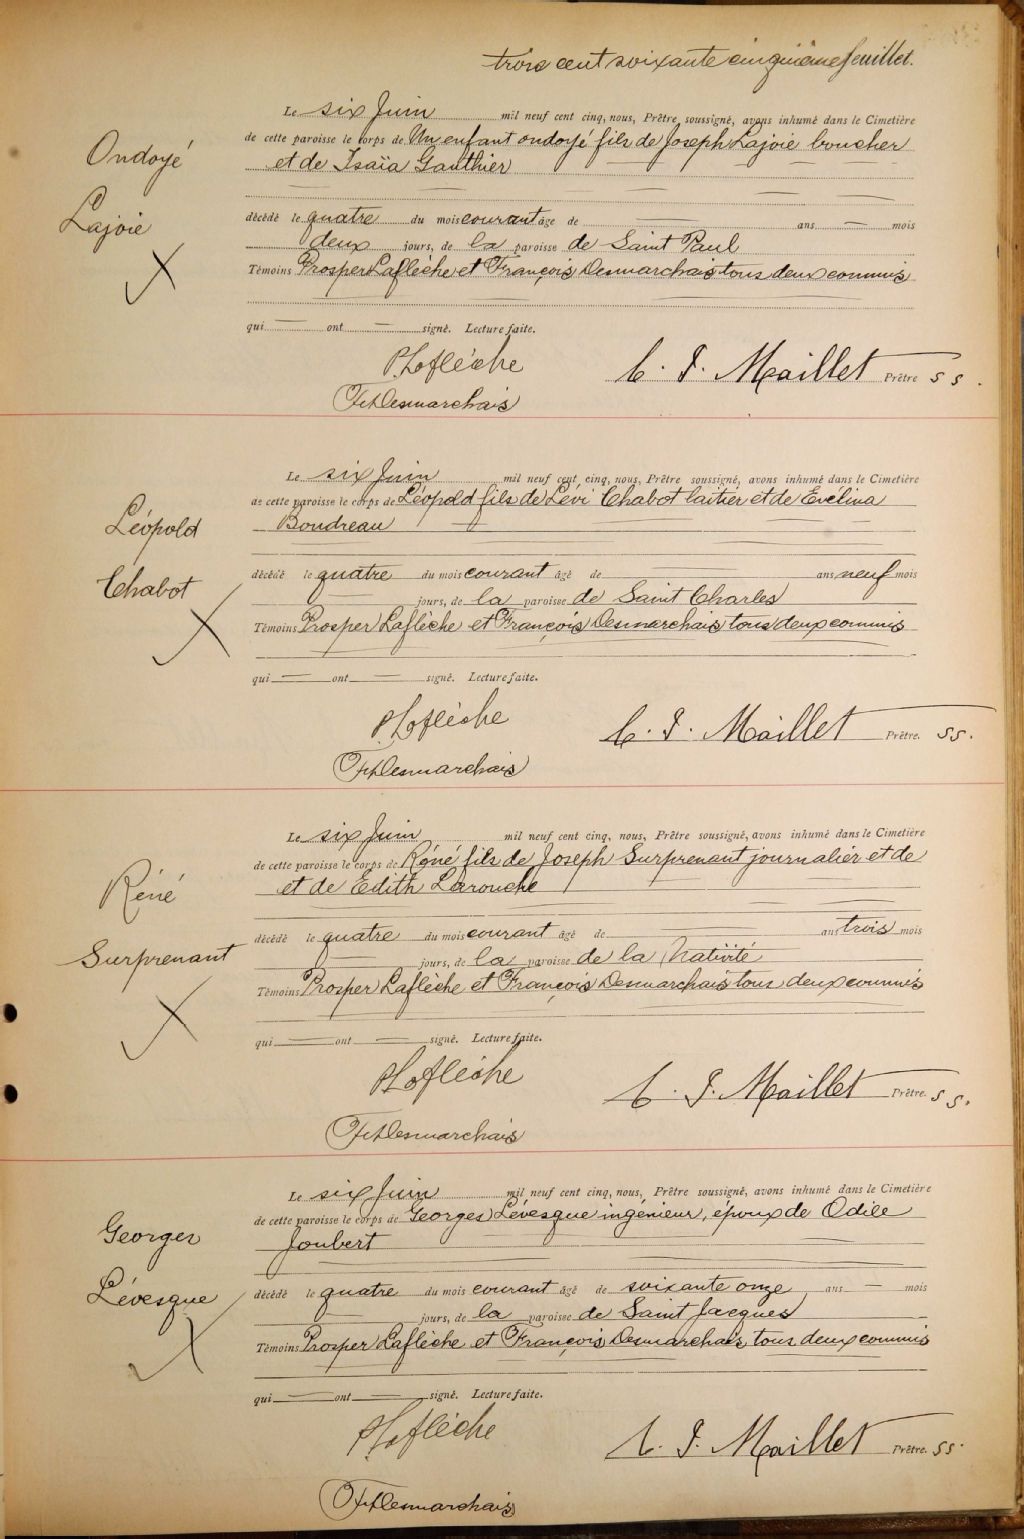 trois cent soixante cinquième feuillet.
Ondoyé
Lajoie
Le six Juin mil neuf cent cinq, nous, Prêtre soussigné, avons inhumé dans le Cimetière
de cette paroisse le corps de Un enfant ondoyé fils de Joseph Lajoie boucher
et de Isaïa Gauthier
décédé le quatre du mois courant âgé de ans mois
deux jours, de la paroisse de Saint Paul
Témoins Prosper Laflèche et François Desmarchais tous deux commis
qui ont signé. Lecture faite.
PLaflèche
C. J. Maillet Prêtre SS.
FXDesmarchais
Léopold
Chabot
Le six Juin mil neuf cent cinq, nous, Prêtre soussigné, avons inhumé dans le Cimetière
de cette paroisse le corps de Léopold fils de Lévi Chabot laitier et de Evelina
Boudreau
décédé le quatre du mois courant âgé de ans neuf mois
jours, de la paroisse de Saint Charles
Témoins Prosper Laflèche et François Desmarchais tous deux commis
qui ont signé. Lecture faite.
PLaflèche
C. J. Maillet Prêtre. SS.
FXDesmarchais
Réné
Surprenant
Le six Juin mil neuf cent cinq, nous, Prêtre soussigné, avons inhumé dans le Cimetière
de cette paroisse le corps de Réné fils de Joseph Surprenant journalier et de
et de Edith Larouche
décédé le quatre du mois courant âgé de ans trois mois
jours, de la paroisse de la Nativité
Témoins Prosper Laflèche et François Desmarchais tous deux commis
qui ont signé. Lecture faite.
PLaflèche
C. J. Maillet Prêtre. SS.
FXDesmarchais
Georges
Lévesque
Le six Juin mil neuf cent cinq, nous, Prêtre soussigné, avons inhumé dans le Cimetière
de cette paroisse le corps de Georges Lévesque ingénieur, époux de Odile
Joubert
décédé le quatre du mois courant âgé de soixante onze ans mois
jours, de la paroisse de Saint Jacques
Témoins Prosper Laflèche et François Desmarchais tous deux commis
qui ont signé. Lecture faite.
PLaflèche
C. J. Maillet Prêtre. SS.
FXDesmarchais